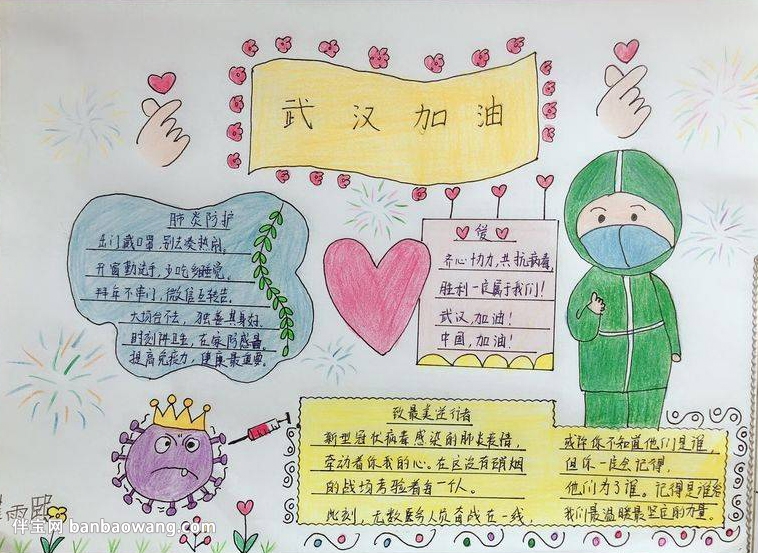 武汉加油
肺炎防护
出门戴口罩,别去凑热闹。
开窗勤洗手,少吃多睡觉。
拜年不串门,微信互转告。
大项合法,独善其身好。
时刻讲卫生,在家防感冒。
提高免疫力,健康最重要。
爱
齐心协力,共抗病毒,
胜利一定属于我们!
武汉,加油!
中国,加油!
致最美逆行者
新型冠状病毒感染的肺炎疫情,
牵动着你我的心。在这没有硝烟
的战场考验着每一个人。
此刻,无数医务人员奋战在一线,
或许你不知道他们是谁,
但你一定会记得,
他们为了谁。记得是谁给
我们最温暖最坚定的力量。
雨
伴宝网 banbaowang.com